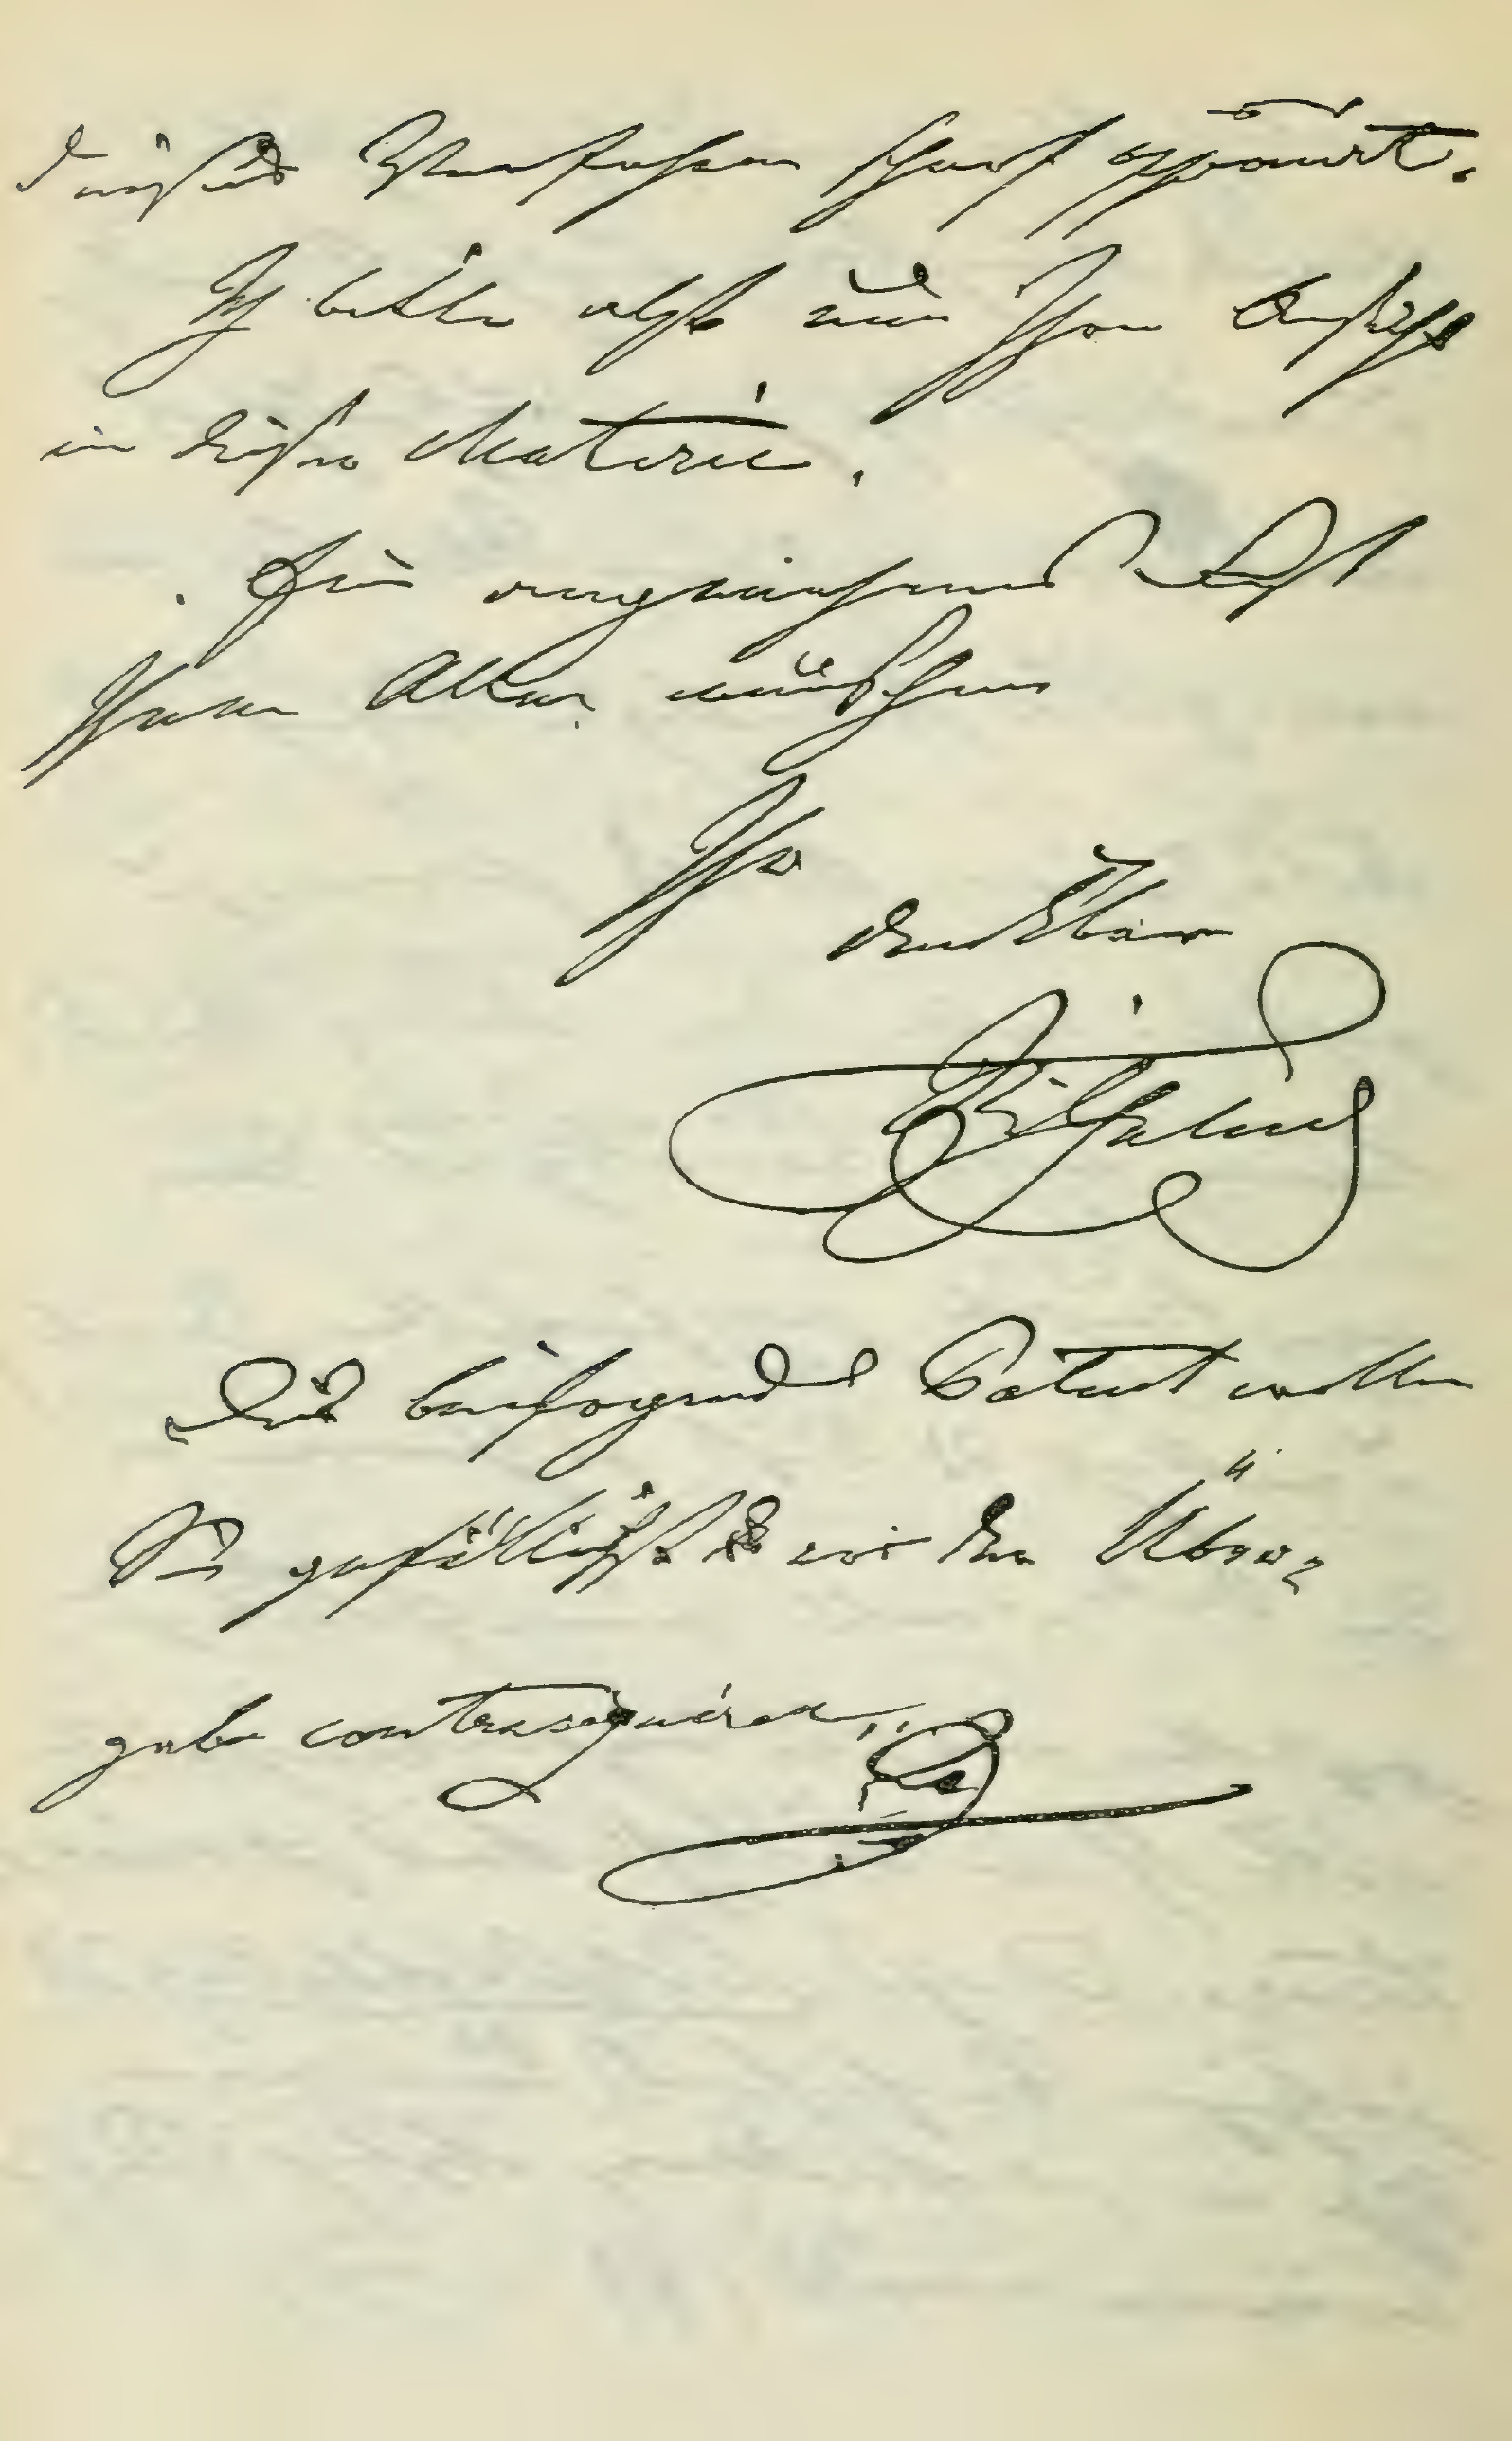 dieses Verfahren scharf opponirt.
Ich bitte also um Ihre Ansicht
in dieser Materie.
Ein angenehmes Fest
Ihnen Allen wünschend
Ihr
dankbarer
Wilhelm
Das beifolgende Patent wollen
Sie gefälligst vor der Über=
gabe contrasigniren.